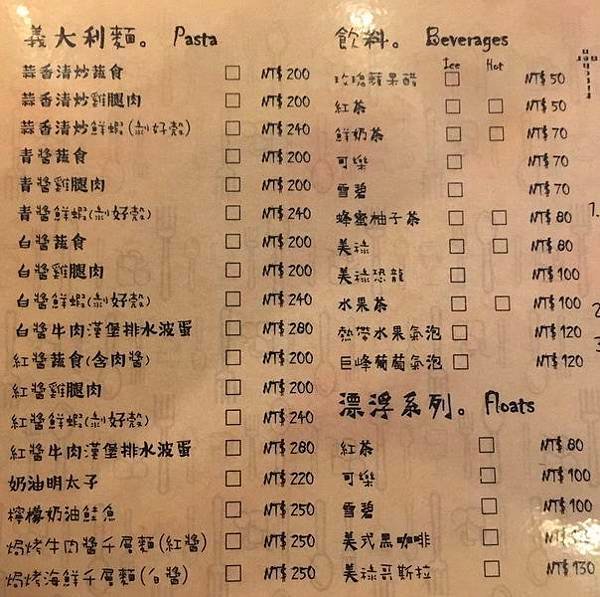 義大利麵。 Pasta
蒜香清炒蔬食 □ NT$ 200
蒜香清炒雞腿肉 □ NT$ 200
蒜香清炒鮮蝦(剝好殼) □ NT$ 240
青醬蔬食 □ NT$ 200
青醬雞腿肉 □ NT$ 200
青醬鮮蝦(剝好殼) □ NT$ 240
白醬蔬食 □ NT$ 200
白醬雞腿肉 □ NT$ 200
白醬鮮蝦(剝好殼) □ NT$ 240
白醬牛肉漢堡排水波蛋 □ NT$ 280
紅醬蔬食(含肉醬) □ NT$ 200
紅醬雞腿肉 □ NT$ 200
紅醬鮮蝦(剝好殼) □ NT$ 240
紅醬牛肉漢堡排水波蛋 □ NT$ 280
奶油明太子 □ NT$ 220
檸檬奶油鮭魚 □ NT$ 250
焗烤牛肉醬千層麵(紅醬) □ NT$ 250
焗烤海鮮千層麵(白醬) □ NT$ 250
飲料。 Beverages
Ice Hot
玫瑰蘋果醋 □ NT$ 50
紅茶 □ □ NT$ 50
鮮奶茶 □ □ NT$ 70
可樂 □ NT$ 70
雪碧 □ NT$ 70
蜂蜜柚子茶 □ □ NT$ 80
美祿 □ □ NT$ 80
美祿恐龍 □ NT$ 100
水果茶 □ □ NT$ 100
熱帶水果氣泡 □ NT$ 120
巨峰葡萄氣泡 □ NT$ 120
漂浮系列。 Floats
紅茶 □ NT$ 80
可樂 □ NT$ 100
雪碧 □ NT$ 100
美式黑咖啡 □ NT$
美祿哥斯拉 □ NT$ 130
1.
2
3